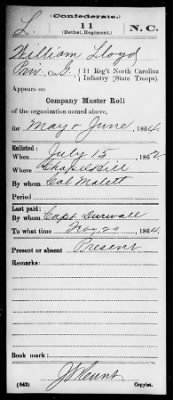 (Confederate.)
L. 11 N. C.
(Bethel Regiment.)
William Lloyd
Co. G, 11 Reg't North Carolina
Infantry (State Troops).
Appears on
Company Muster Roll
of the organization named above,
for May & June, 1864.
Enlisted:
When July 15, 1862
Where Chapel Hill
By whom Col Malett
Period
Last paid:
By whom Capt
To what time 1864.
Present or absent Present
Remarks:
Book mark:
(642) Copyist.